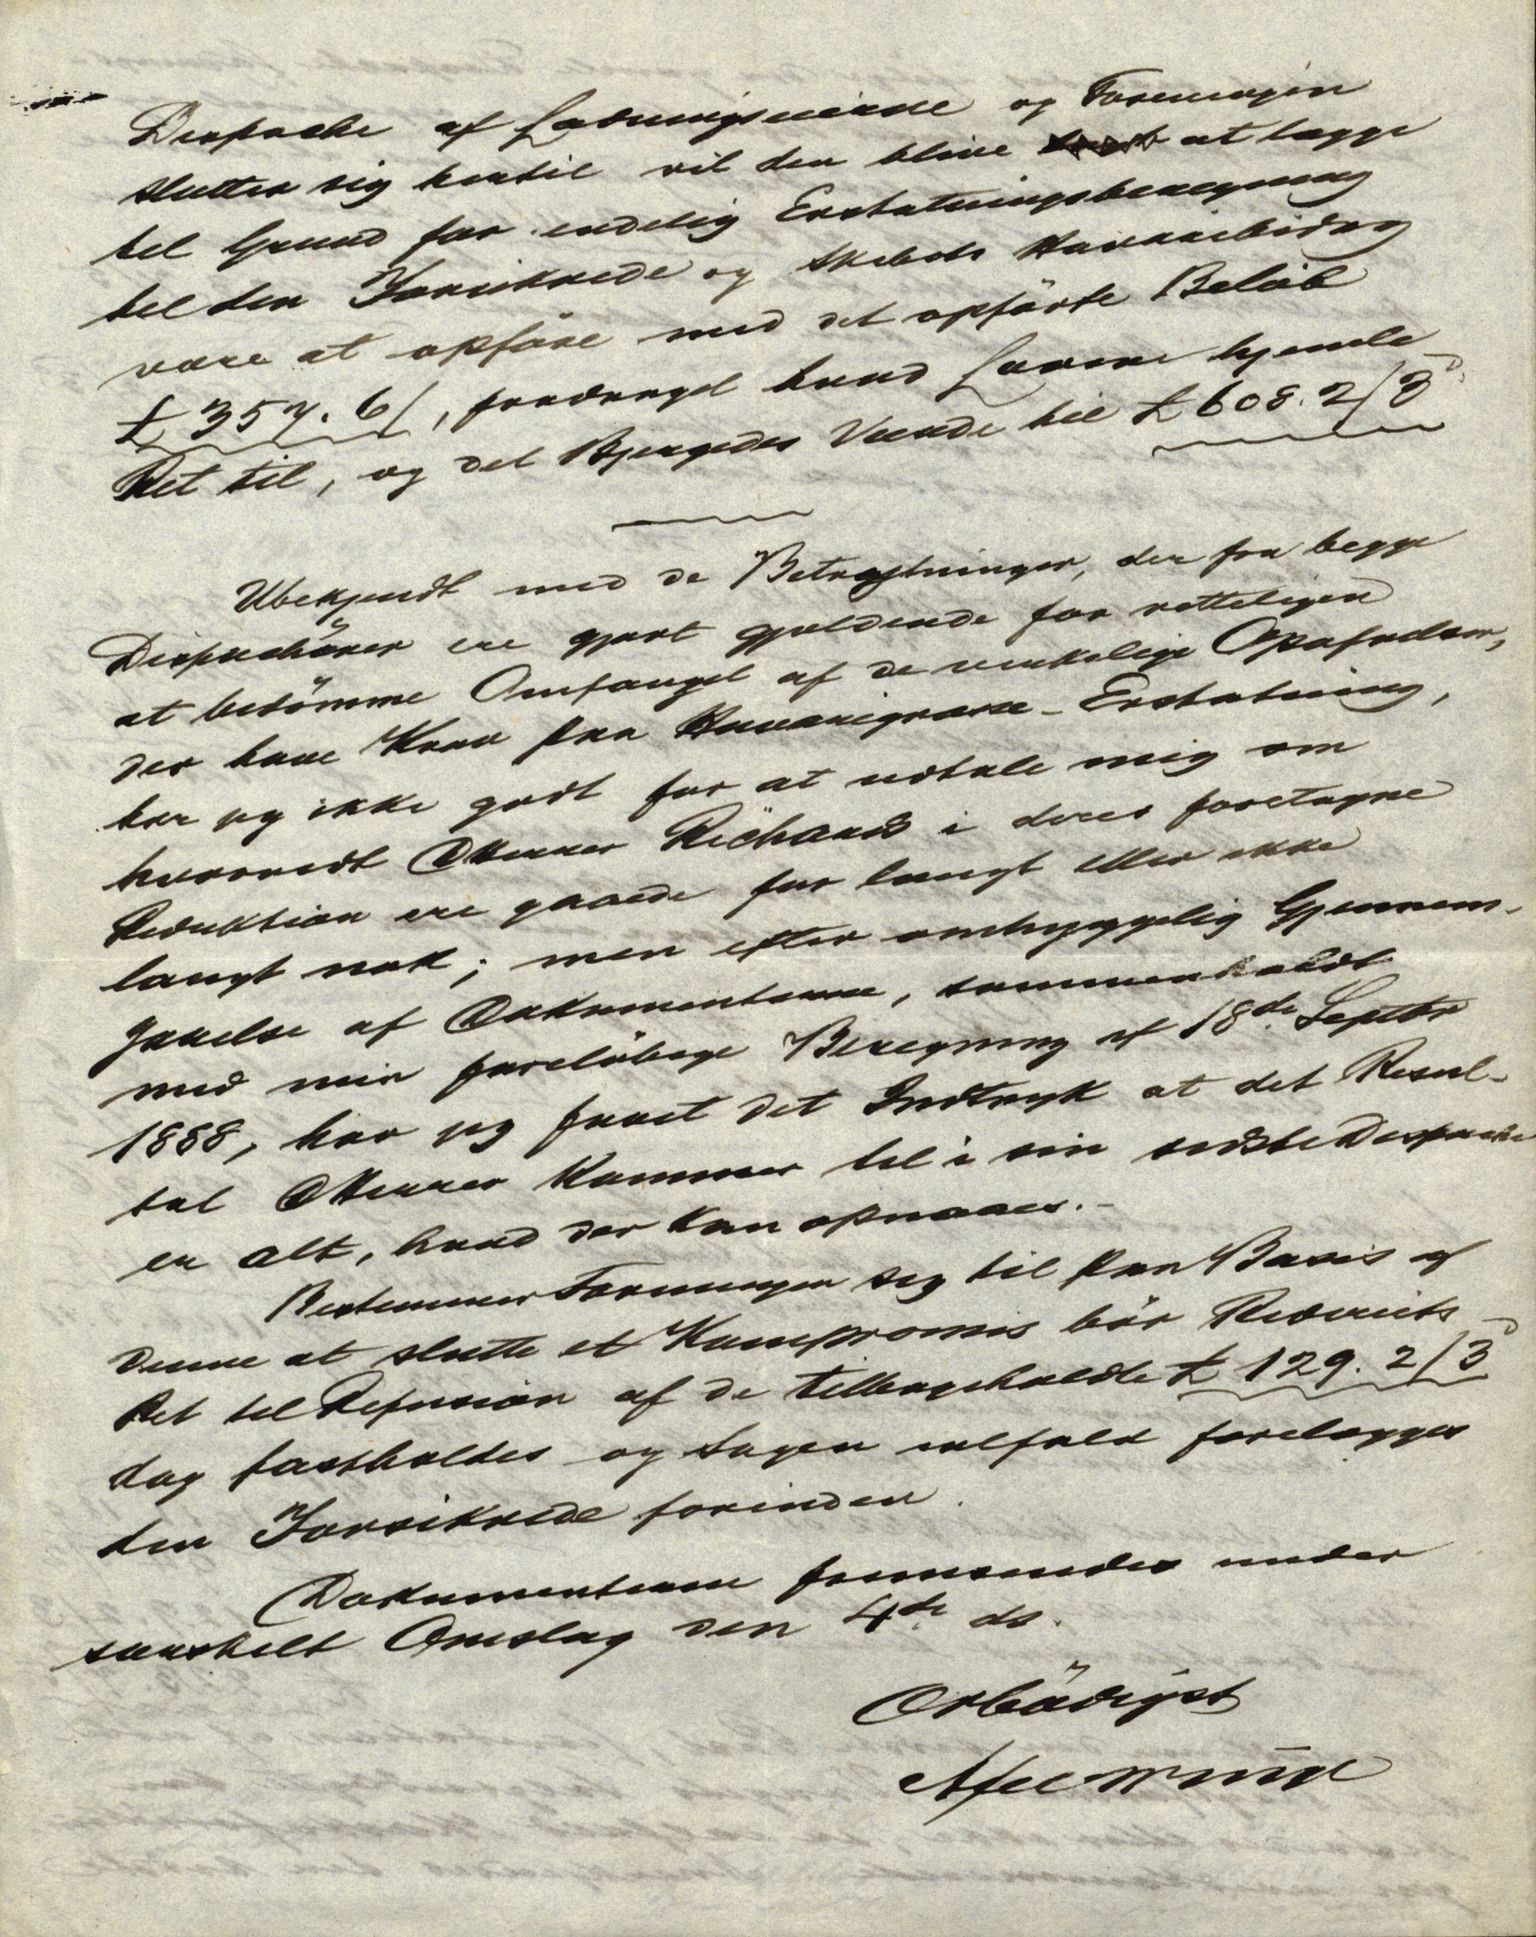 Dispache af Ladningseierne og Foreningen
slutter sig hertil vil den blive at lægge
til Grund for endelig Erstatningsberegning
til den Forsikrede og Skibets Havaribidrag
være at opföre med det opförte Belöb
£ 357. 6/, fradraget hvad Laverne hjemle
Ret til, og det Bjergedes Værdi til £ 608. 2/3d
Ubekjendt med de Betragtninger, der fra begge
Dispachörer ere gjort gjældende for retteligen
at bedömme Omfanget af de virkelige Opofrelser,
der have Krav paa Havarigrosse-Erstatning,
tör jeg ikke godt for at udtale mig om
hvorvidt DHerrer Richards i deres foretagne
Reduktion ere gaaede for langt eller ikke
langt nok; men efter omhyggelig Gjennem-
gaaelse af Dokumenterne, sammenholdt
med min foreløbige Beregning af 18de Septbr
1888, har jeg faaet det Indtryk at det Resul-
tat DHerrer kommer til i sin sidste Dispache
er alt, hvad der kan opnaaes.-
Bestemmer Foreningen sig til paa Basis af
denne at slutte et Kompromis bör Rederiets
Ret til Refusion af de tilbageholdte £ 129. 2/3d
dog fastholdes og Sagen ialfald forelægges
den Forsikrede forinden.
Dokumenterne fremsendes under
særskilt Omslag den 4de ds.
Ærbödigst